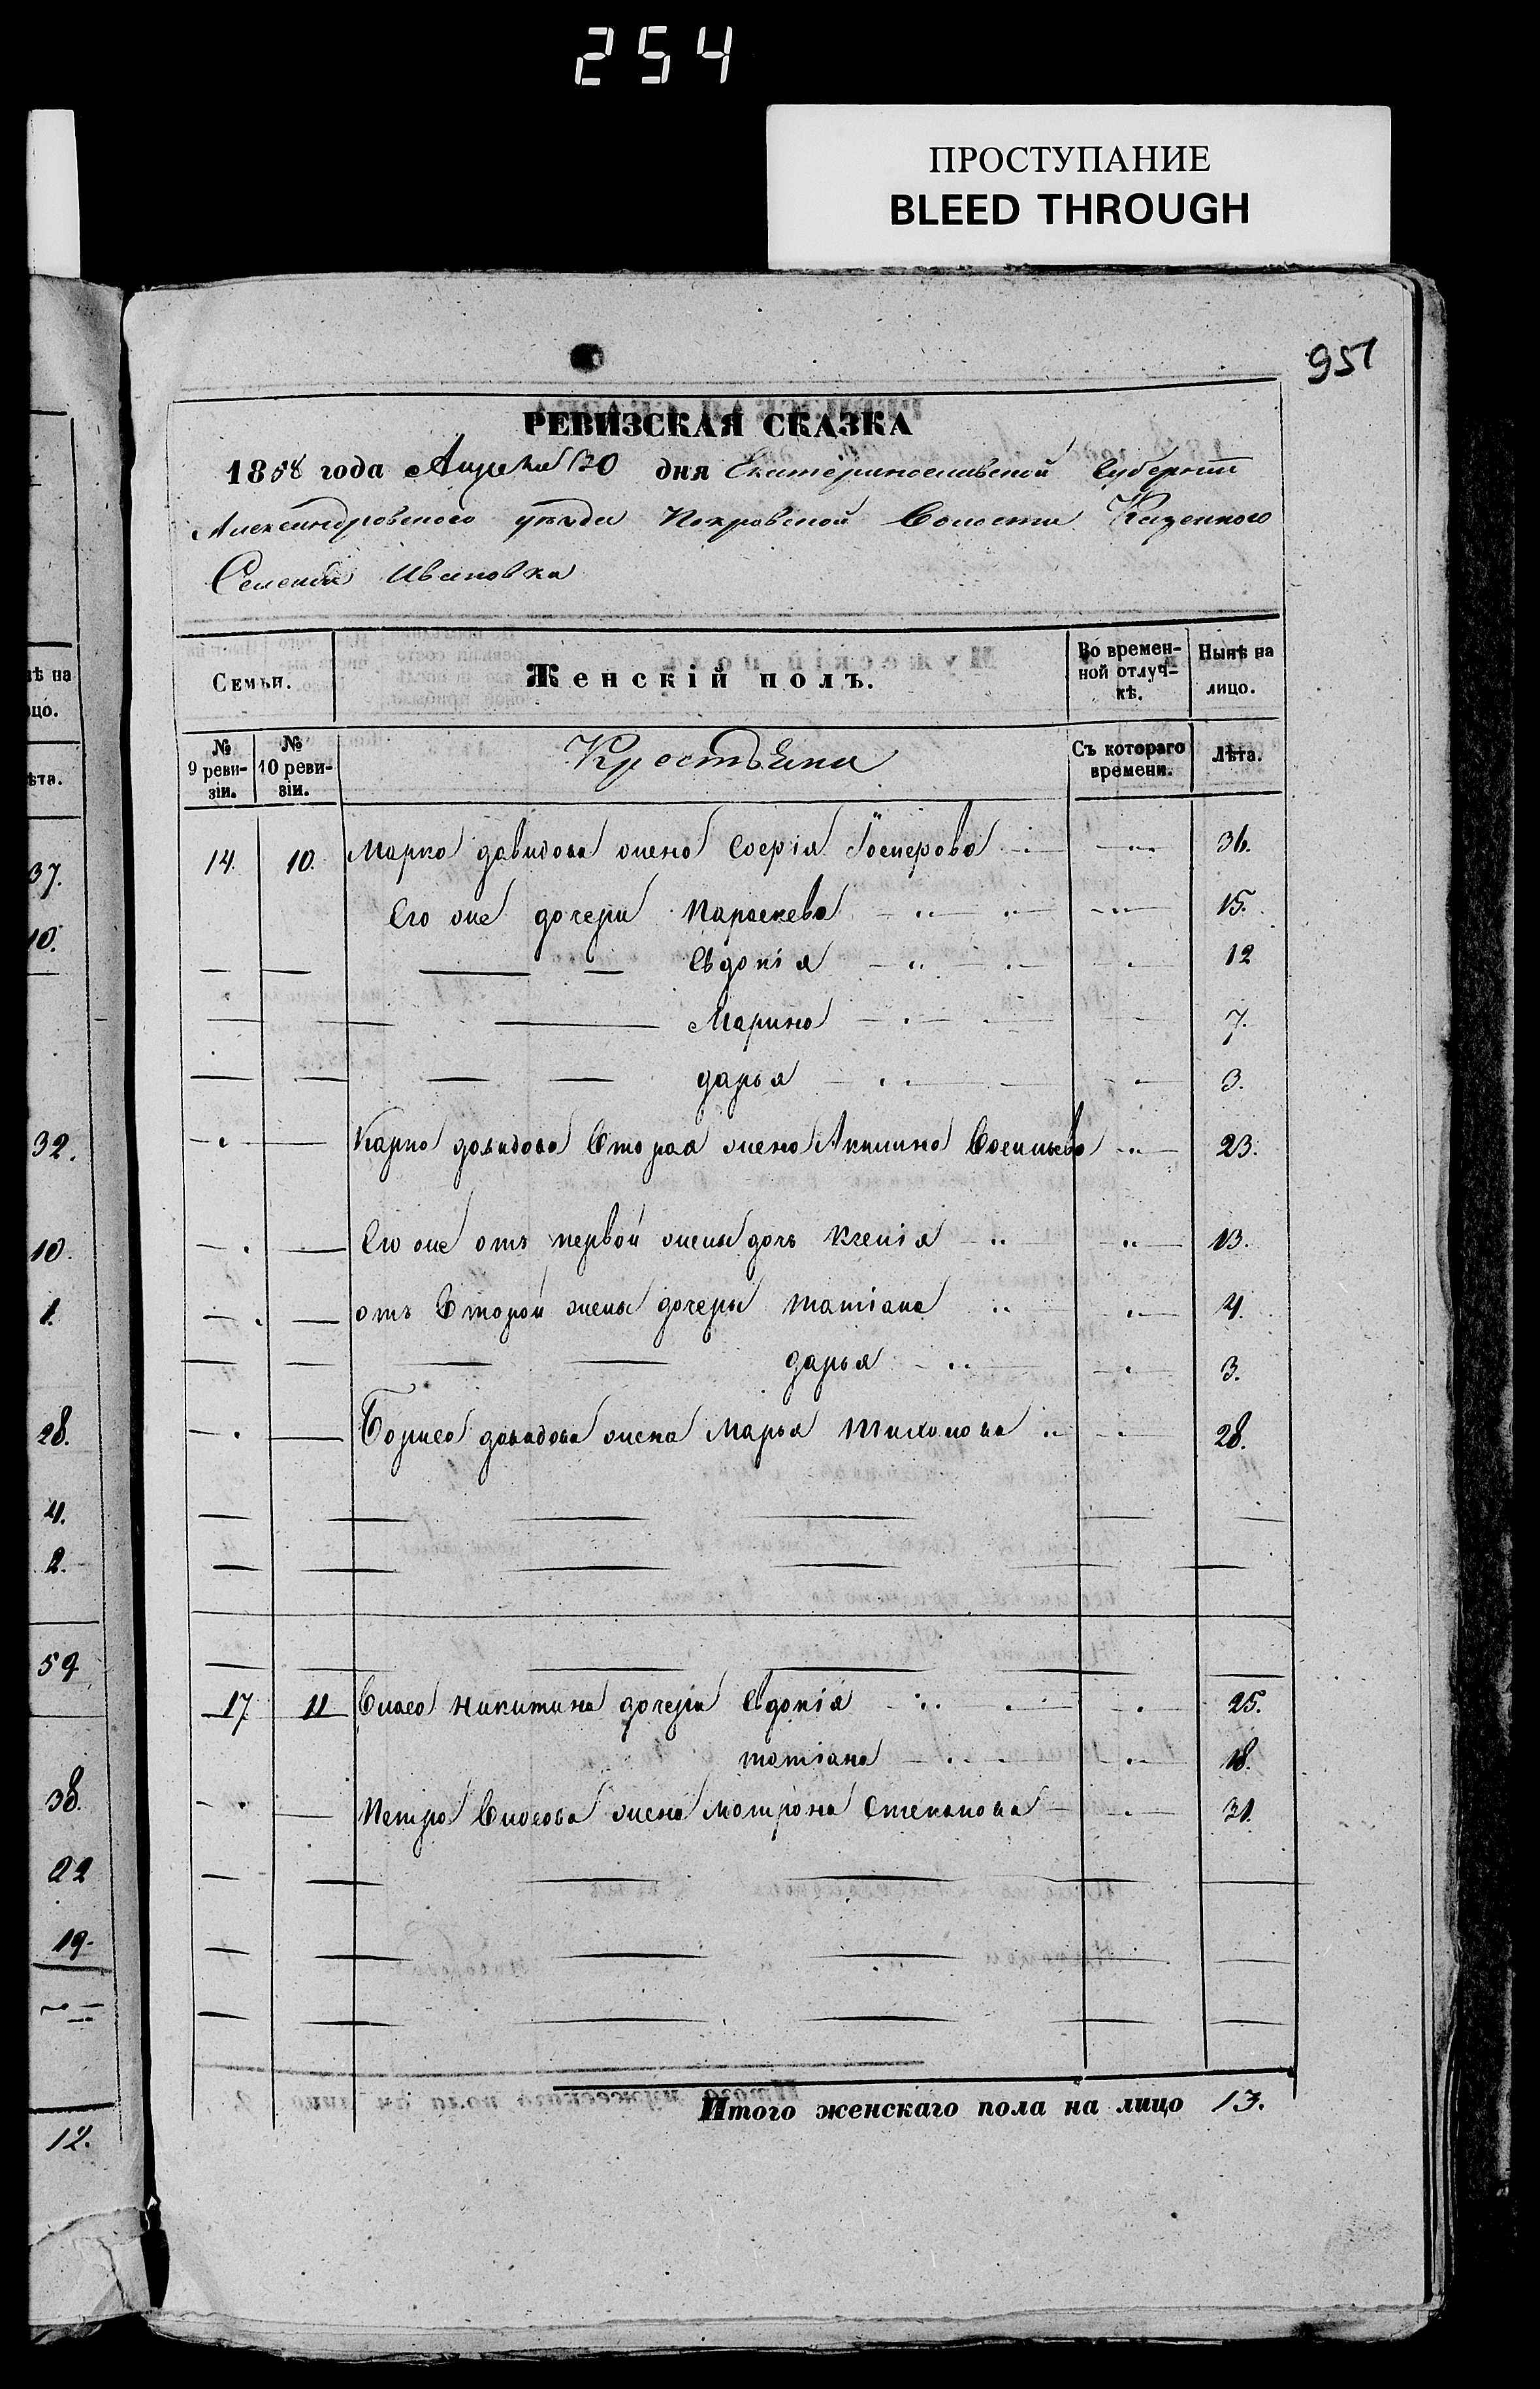 254
ПРОСТУПАНИЕ
BLEED THROUGH
951
РЕВИЗСКАЯ СКАЗКА
1858 года Апреля 30 дня Екатеринославской Губернии
Александровского уезда Покровской Волости Казенного
Селения Ивановка
Семьи. Женскій полъ. Во времен-ной отлуч-кѣ. Нынѣ на лицо.
№ 9 реви-зіи. № 10 реви-зіи. Крестьяни Съ котораго времени. Лѣта.
14. 10. Марка давидова жена Софія 36.
Его же дочери Параскева 15.
Евдокія 12
Марина 7.
дарья 3.
Карпа давидова Вторая жена Акилина Васильева 23.
Его же отъ первой жены дочь Ксенія 13.
отъ Второй жены дочери татіана 4.
дарья 3.
Бориса давидова жена Марья Тихонова 28.
17 11 Власа Никитина дочери Евдокія 25.
татіана 18.
Петра Власова жена Мотрона Степанова 31.
Итого женскаго пола на лицо 13.
ѣ на
цо.
ѣта.
37.
10.
32.
10.
1.
28.
4.
2.
59
38.
22
19.
12.